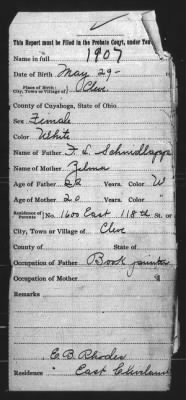 This Report must be Filed in the Probate Court, under
Name in full 1907
Date of Birth May 29-
Place of Birth
City, Town or Village of Cleve
County of Cuyahoga, State of Ohio.
Sex Female
Color White
Name of Father F. L. Schmidlapp
Name of Mother Zelma
Age of Father 22 Years. Color W
Age of Mother 20 Years. Color
Residence of Parents No. 1600 East 118th St. or
City, Town or Village of Cleve
County of State of
Occupation of Father Book
Occupation of Mother
Remarks
C. B. Rhodes
Residence East Cleveland